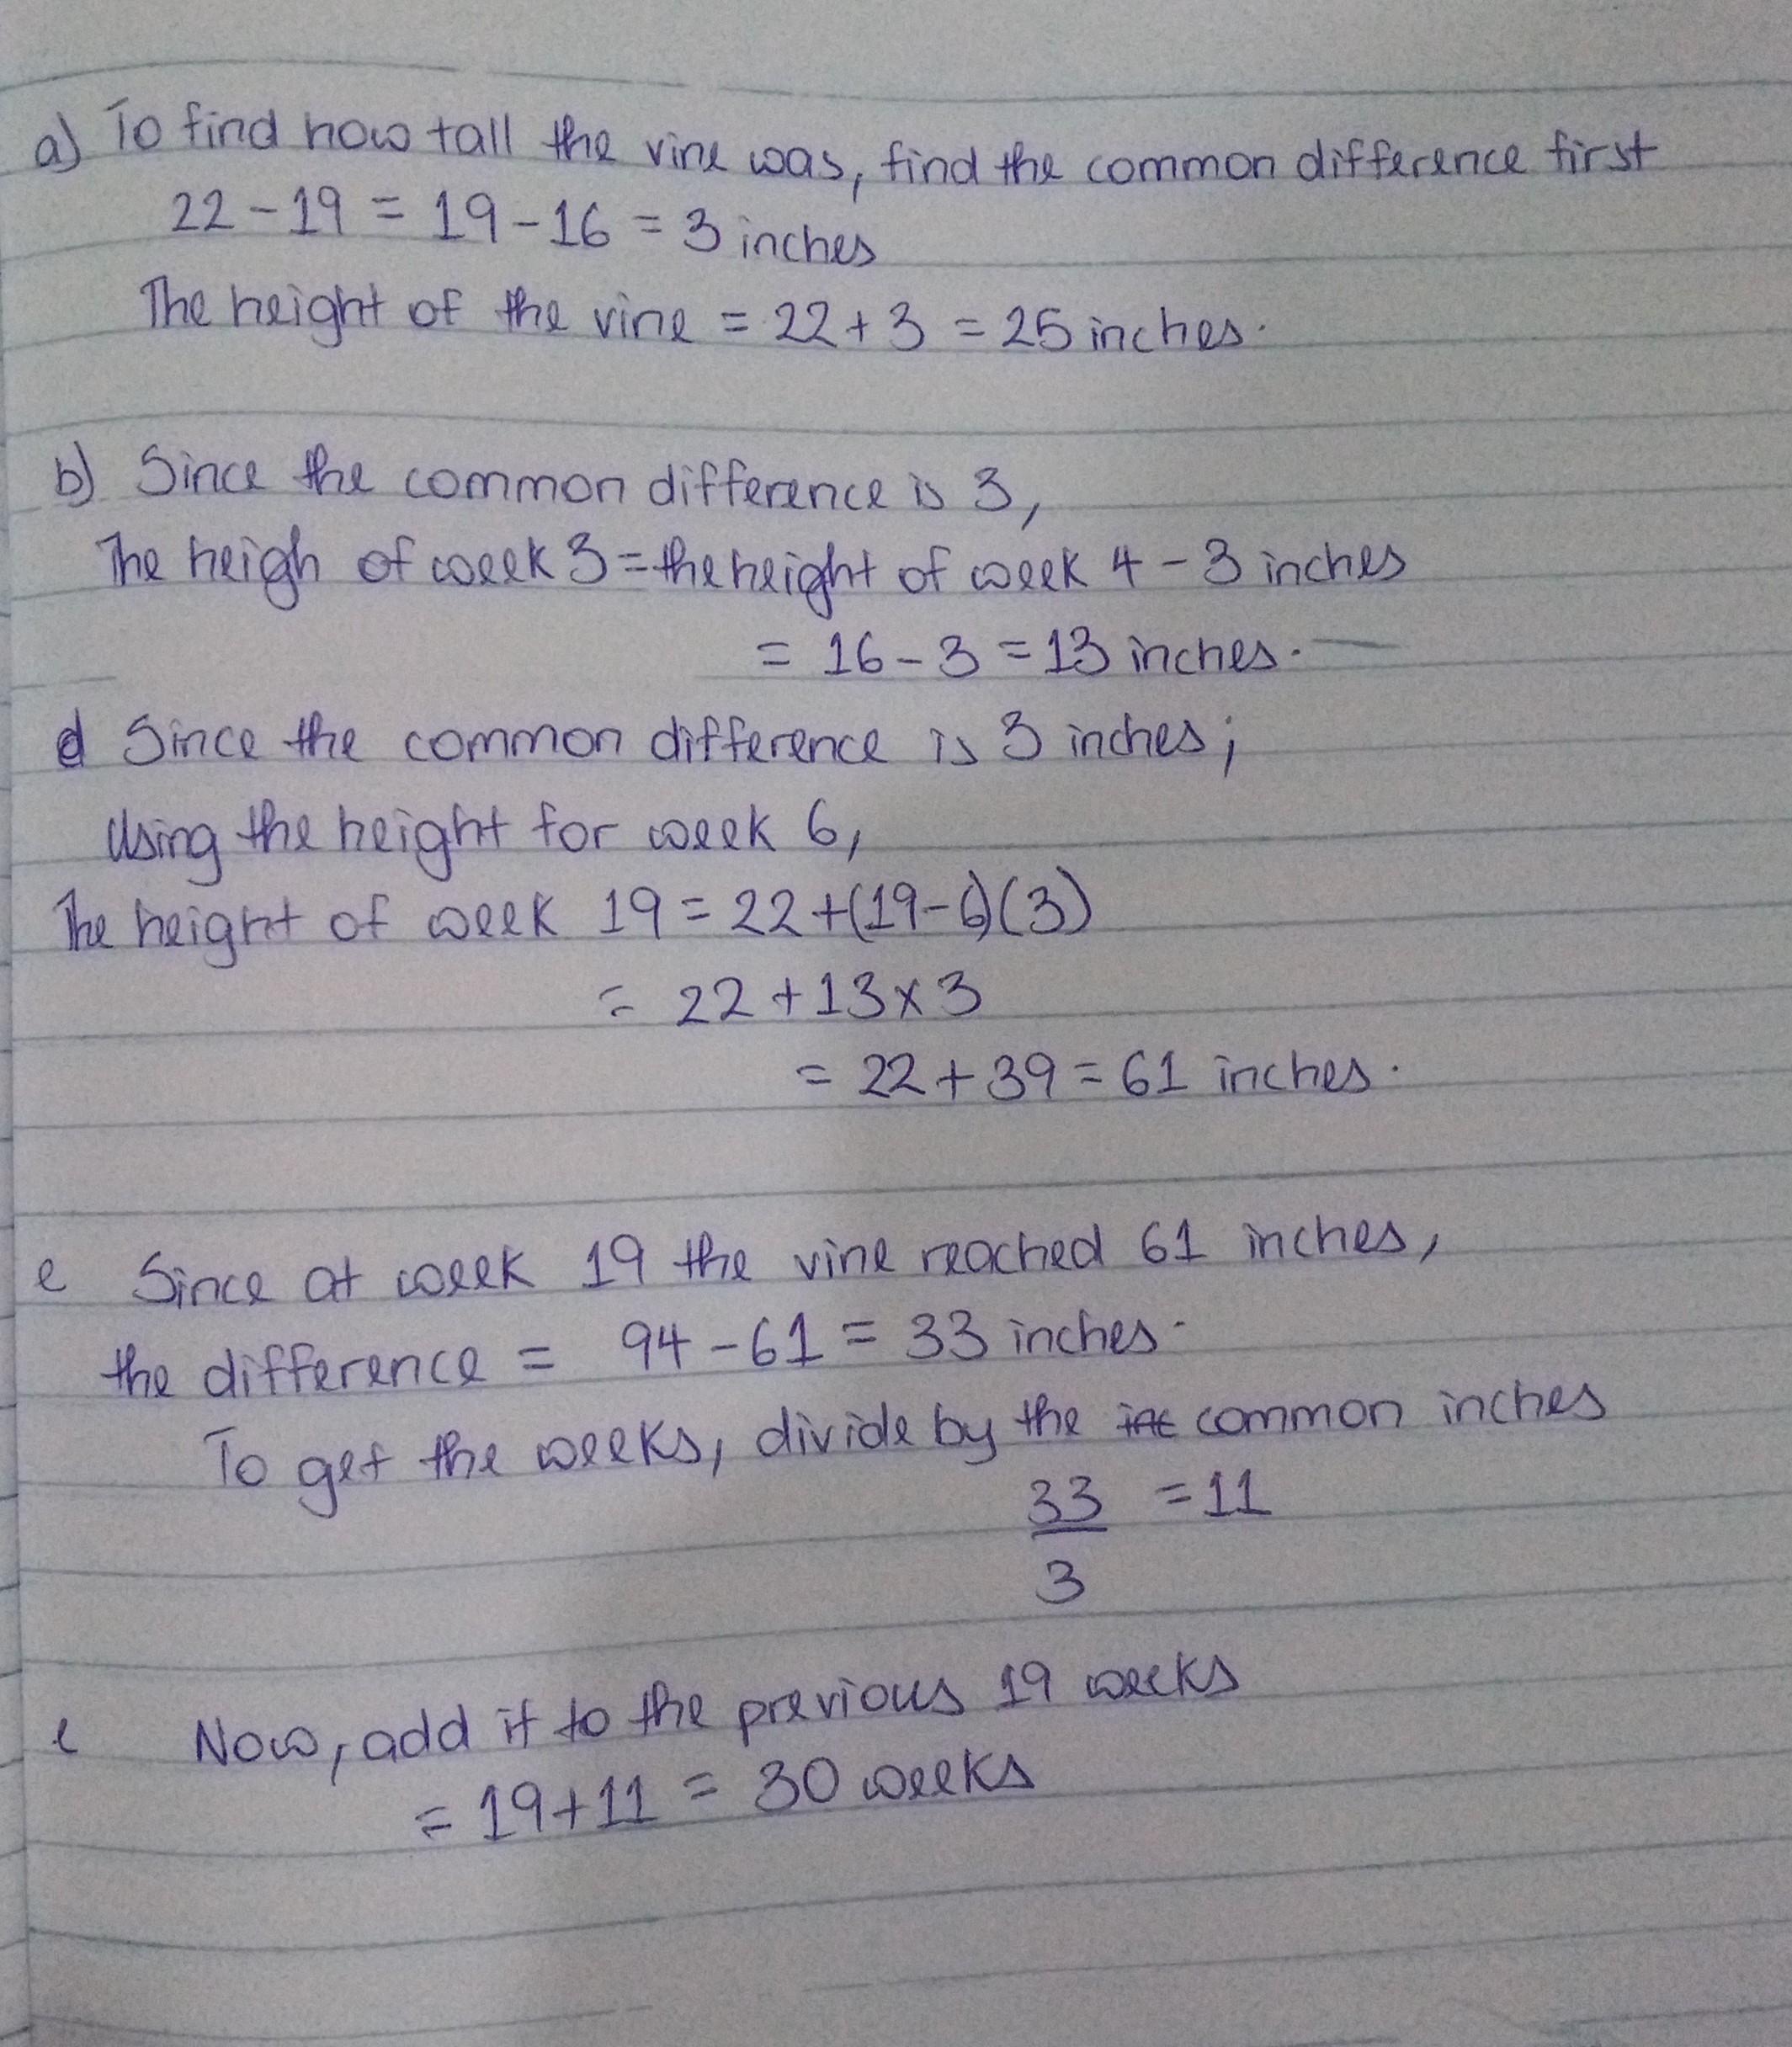 a) To find how tall the vine was, find the common difference first
22 - 19 = 19 - 16 = 3 inches
The height of the vine = 22 + 3 = 25 inches.
b) Since the common difference is 3,
The heigh of week 3 = the height of week 4 - 3 inches
= 16 - 3 = 13 inches.
d Since the common difference is 3 inches;
Using the height for week 6,
The height of week 19 = 22 + (19 - 6)(3)
= 22 + 13 x 3
= 22 + 39 = 61 inches.
e Since at week 19 the vine reached 61 inches,
the difference = 94 - 61 = 33 inches.
To get the weeks, divide by the common inches
33 = 11
3
e Now, add it to the previous 19 weeks
= 19 + 11 = 30 weeks